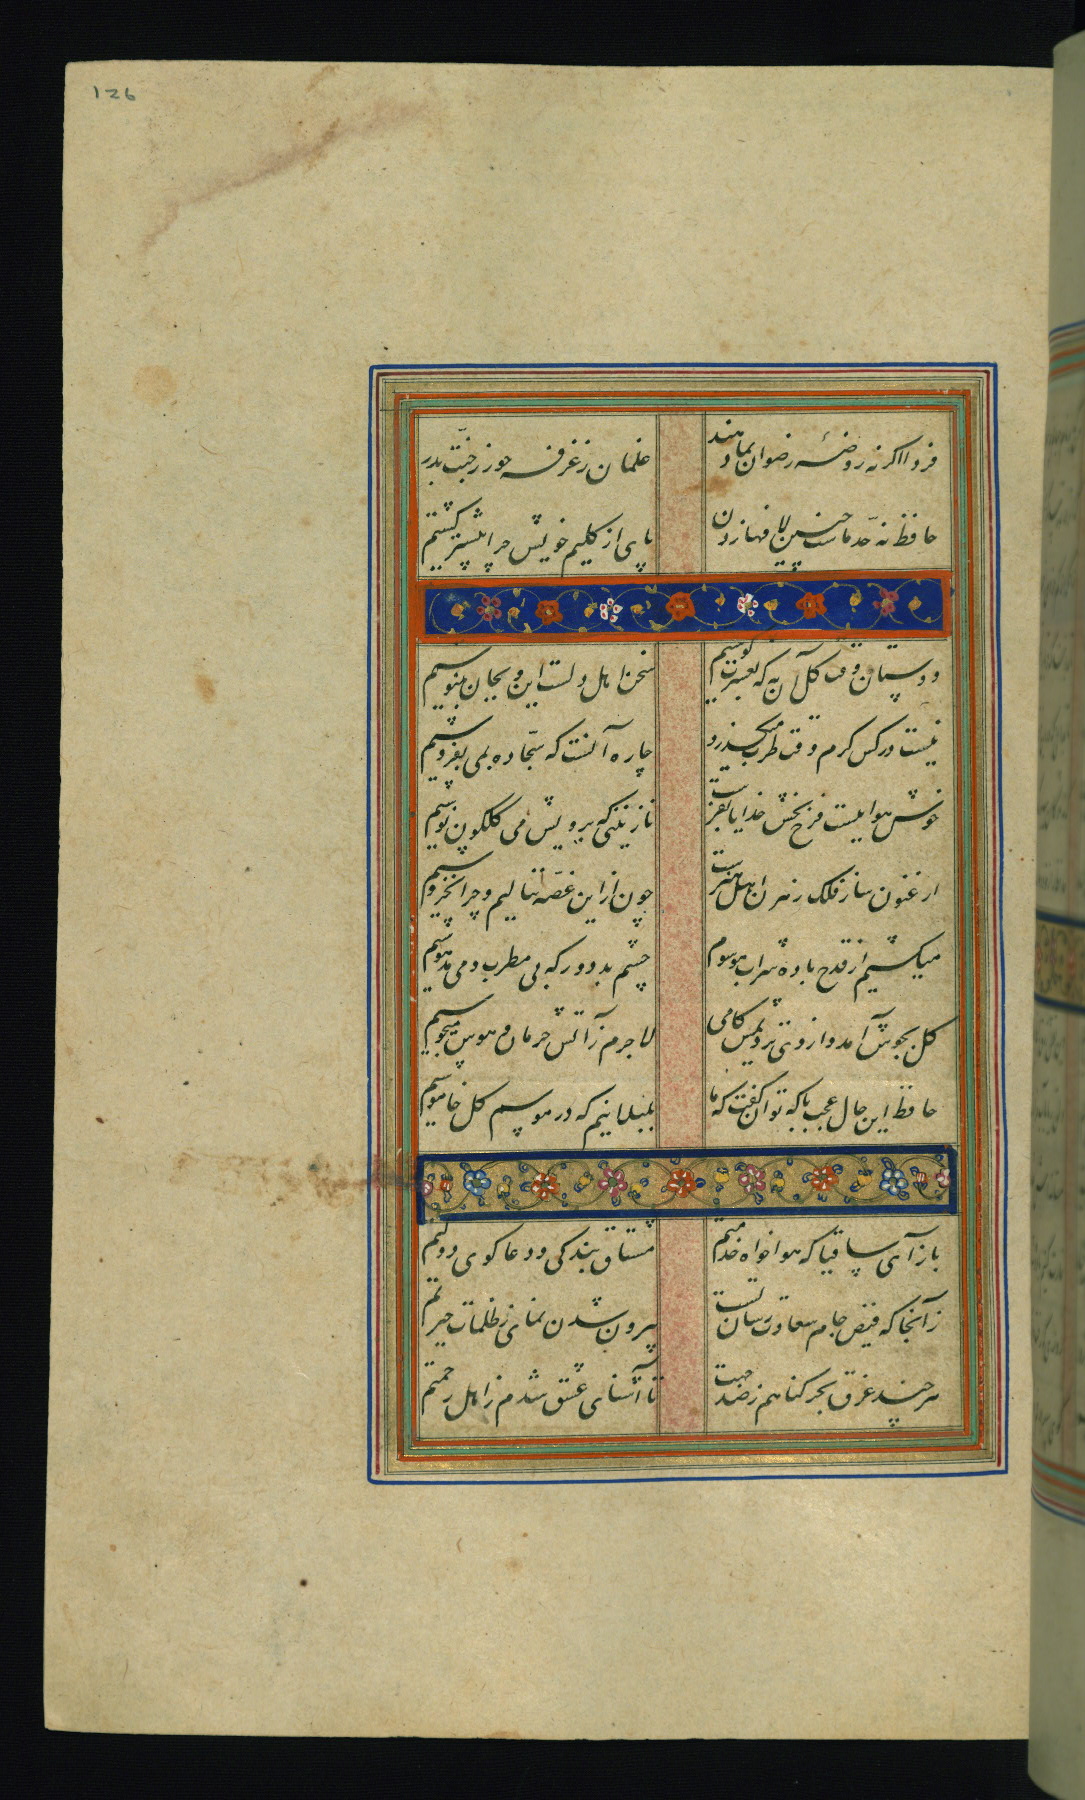 126
فردا اگر نه روضهٔ رضوان بما دهند
غلمان ز غرفه حور ز جنّت بدر کشیم
حافظ نه حّد ماست چنین لافها زدن
پای از کلیم خویش چرا پیشتر کشیم
دوستان وقت کل آن به که بعشرت کوشیم
سخن اهل دلست این و بجان بنیوشیم
نیست در کس کرم و وقت طرب میکذرد
چاره آنست که سجّاده بمی بفروشیم
خوش هوائیست فرح بخش خدایا بفرست
نازنینی که برویش می کلکون نوشیم
ارغنون ساز فلک رهزن اهل هنرست
چون از این غصّه ننالیم و چرا نخروشیم
میکشیم از قدح باده شراب موهوم
چشم بد دور که بی مطرب و می مدهوشیم
کل بجوش آمد و از می نزدیمش آبی
لاجرم زآتش حرمان و هوس میجوشیم
حافظ این حال عجب با که توان کفت که ما
بلبلانیم که در موسم کل خاموشیم
باز آی ساقیا که هوا خواه خدمتم
مشتاق بندکی و دعا کوی دولتم
زآنجا که فیض جام سعادت بسان تست
بیرون شدن نمای ز ظلمات حیرتم
هر چند غرق بحر کناهم ز صد جهت
تا آشنای عشق شدم ز اهل رحمتم